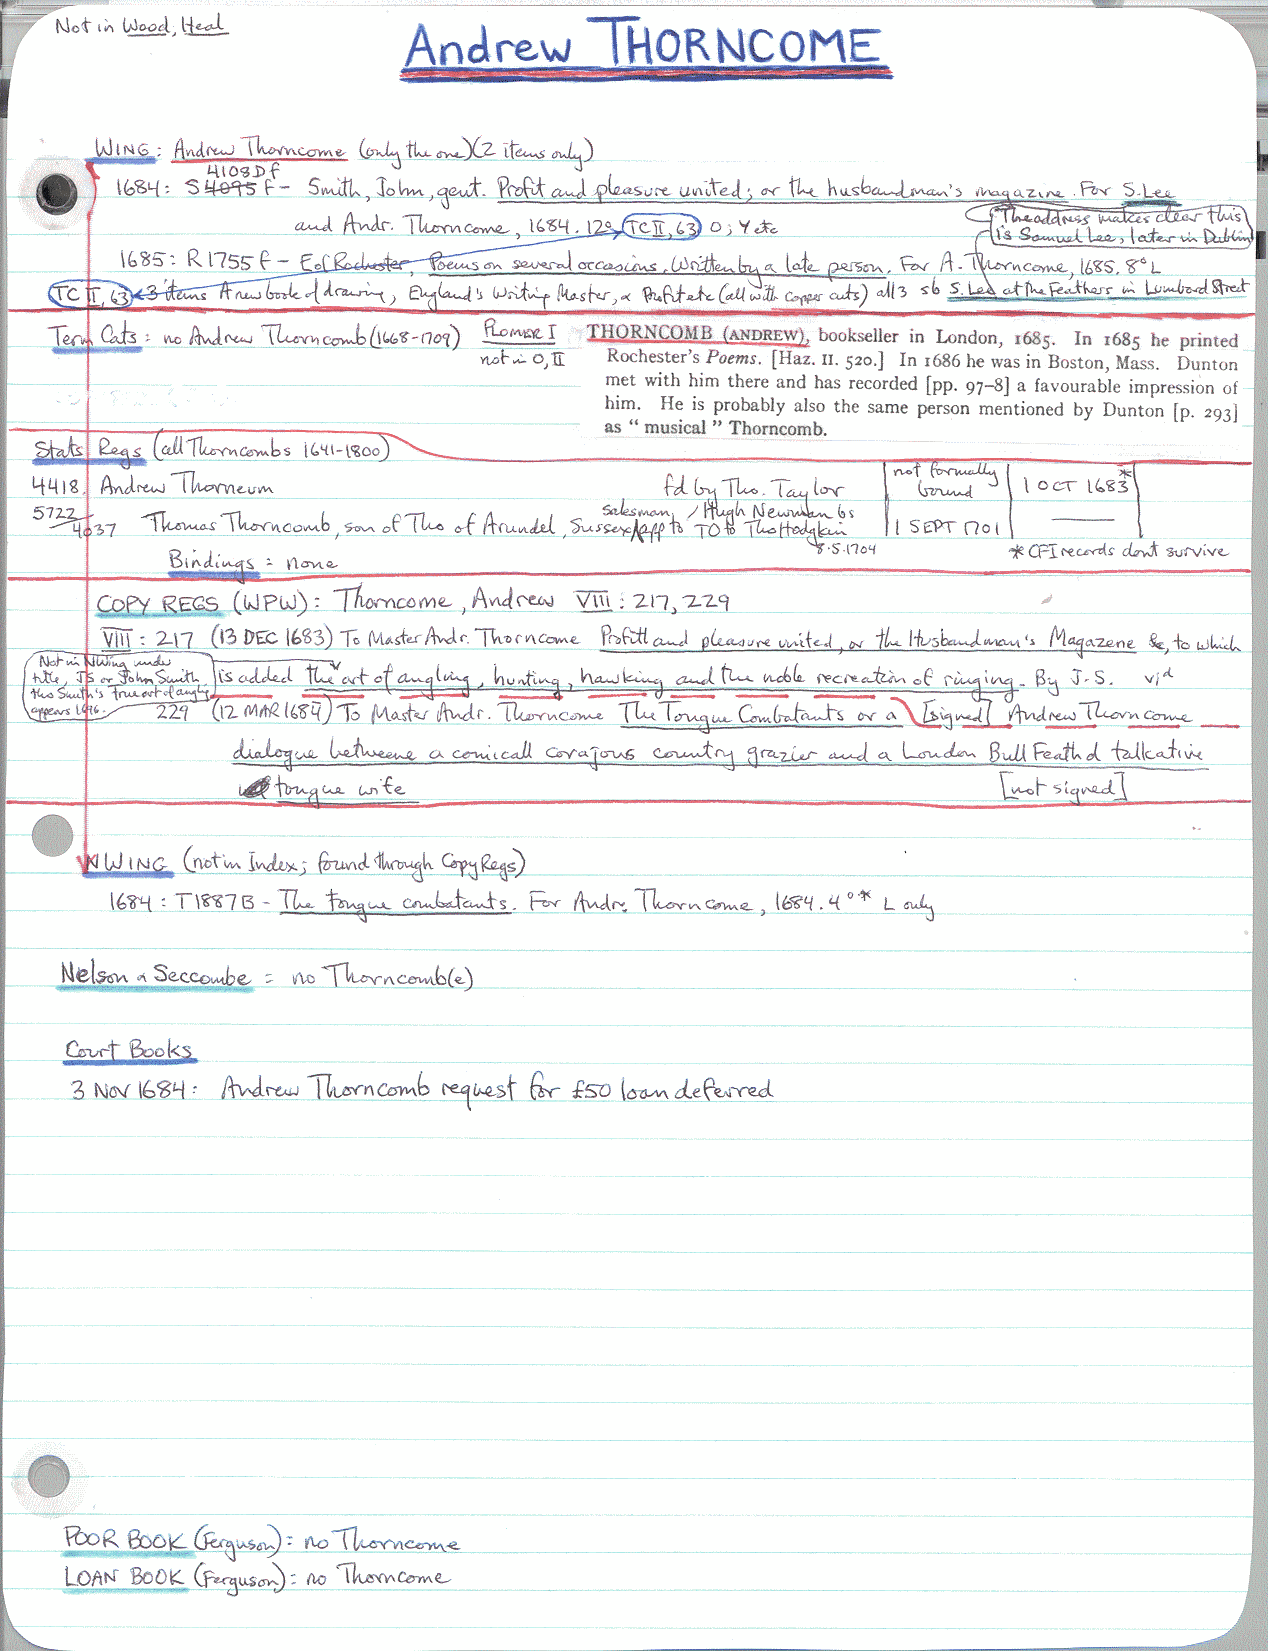 Not in Wood, Heal
Andrew THORNCOME
WING: Andrew Thorncome (only the one)(2 items only)
4108Df
1684: S4095f - Smith, John, gent. Profit and pleasure united; or the husbandman's magazine. For S. Lee
and Andr. Thorncome, 1684. 12o (TC II, 63) O; Y etc
The address makes clear this
is Samuel Lee, later in Dublin
1685: R1755f - E of Rochester, Poems on several occasions. Written by a late person. For A. Thorncome, 1685. 8° L
TC II, 63 3 items A new book of drawing, England's Writing Master, & Profit etc (all with copper cuts) all 3 sb S. Lee at the Feathers in Lumbard Street
Term Cats: no Andrew Thorncomb (1668-1709)
PLOMER I
not in O, II
THORNCOMB (ANDREW), bookseller in London, 1685. In 1685 he printed
Rochester's Poems. [Haz. II. 520.] In 1686 he was in Boston, Mass. Dunton
met with him there and has recorded [pp. 97-8] a favourable impression of
him. He is probably also the same person mentioned by Dunton [p. 293]
as "musical" Thorncomb.
Stats Regs (all Thorncombs 1641-1800)
4418. Andrew Thorneum fd by Tho. Taylor not formally bound 1 OCT 1683*
5722
4037 Thomas Thorncomb, son of Tho of Arundel, Sussex App to Hugh Newman bs TO to Tho Hodgkin 1 SEPT 1701
salesman
8.5.1704
* CFI records dont survive
Bindings = none
COPY REGS (WPW): Thorncome, Andrew VIII: 217, 229
VIII: 217 (13 DEC 1683) To Master Andr. Thorncome Profitt and pleasure united, or the Husbandman's Magazene &c, to which
is added the art of angling, hunting, hawking and the noble recreation of ringing. By J.S. vjd
Not in NWing under
title, JS or John Smith.
tho Smith's true art of angling
appears 1696.
229 (12 MAR 1684) To Master Andr. Thorncome The Tongue Combatants or a [signed] Andrew Thorncome
dialogue betweene a comicall corajous country grazier and a London Bull Feathd talkative
tongue wife [not signed]
NWING (not in Index; found through Copy Regs)
1684: T1887B - The tongue combatants. For Andr. Thorncome, 1684. 4°* L only
Nelson & Seccombe = no Thorncomb(e)
Court Books
3 NOV 1684: Andrew Thorncomb request for £50 loan deferred
POOR BOOK (Ferguson): no Thorncome
LOAN BOOK (Ferguson): no Thorncome